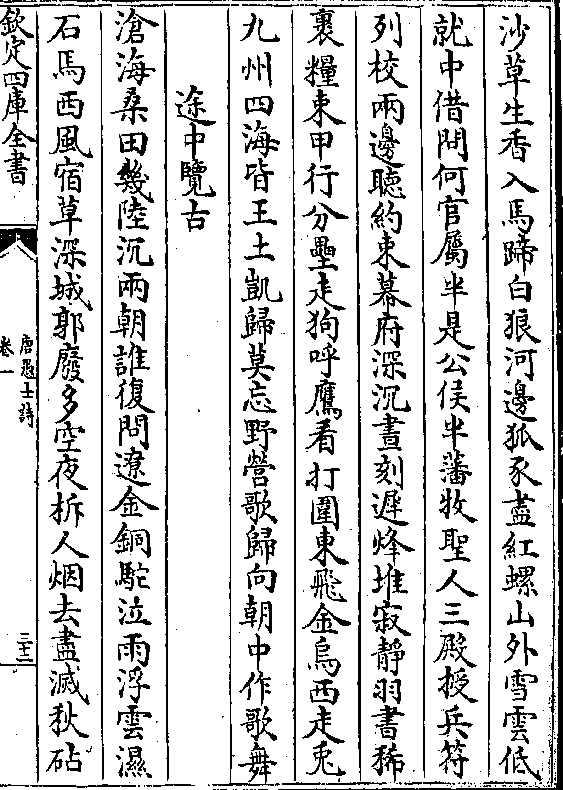 沙草生香入馬蹄白狼河邊狐豕盡紅螺山外雪雲低
就中借問何官屬半是公侯半藩牧聖人三殿授兵符
列校兩邊聽約束幕府深沉晝刻遲烽堆寂靜羽書稀
裹糧束甲行分壘走狗呼鷹看打圍東飛金烏西走兎
九州四海皆王土凱歸莫忘野營歌歸向朝中作歌舞
途中覽古
滄海桑田幾陸沉兩朝誰復問遼金銅駝泣雨浮雲濕
石馬西風宿草深城郭廢多空夜柝人烟去盡滅秋砧
欽定四庫全書
唐愚士詩
卷一
三十二